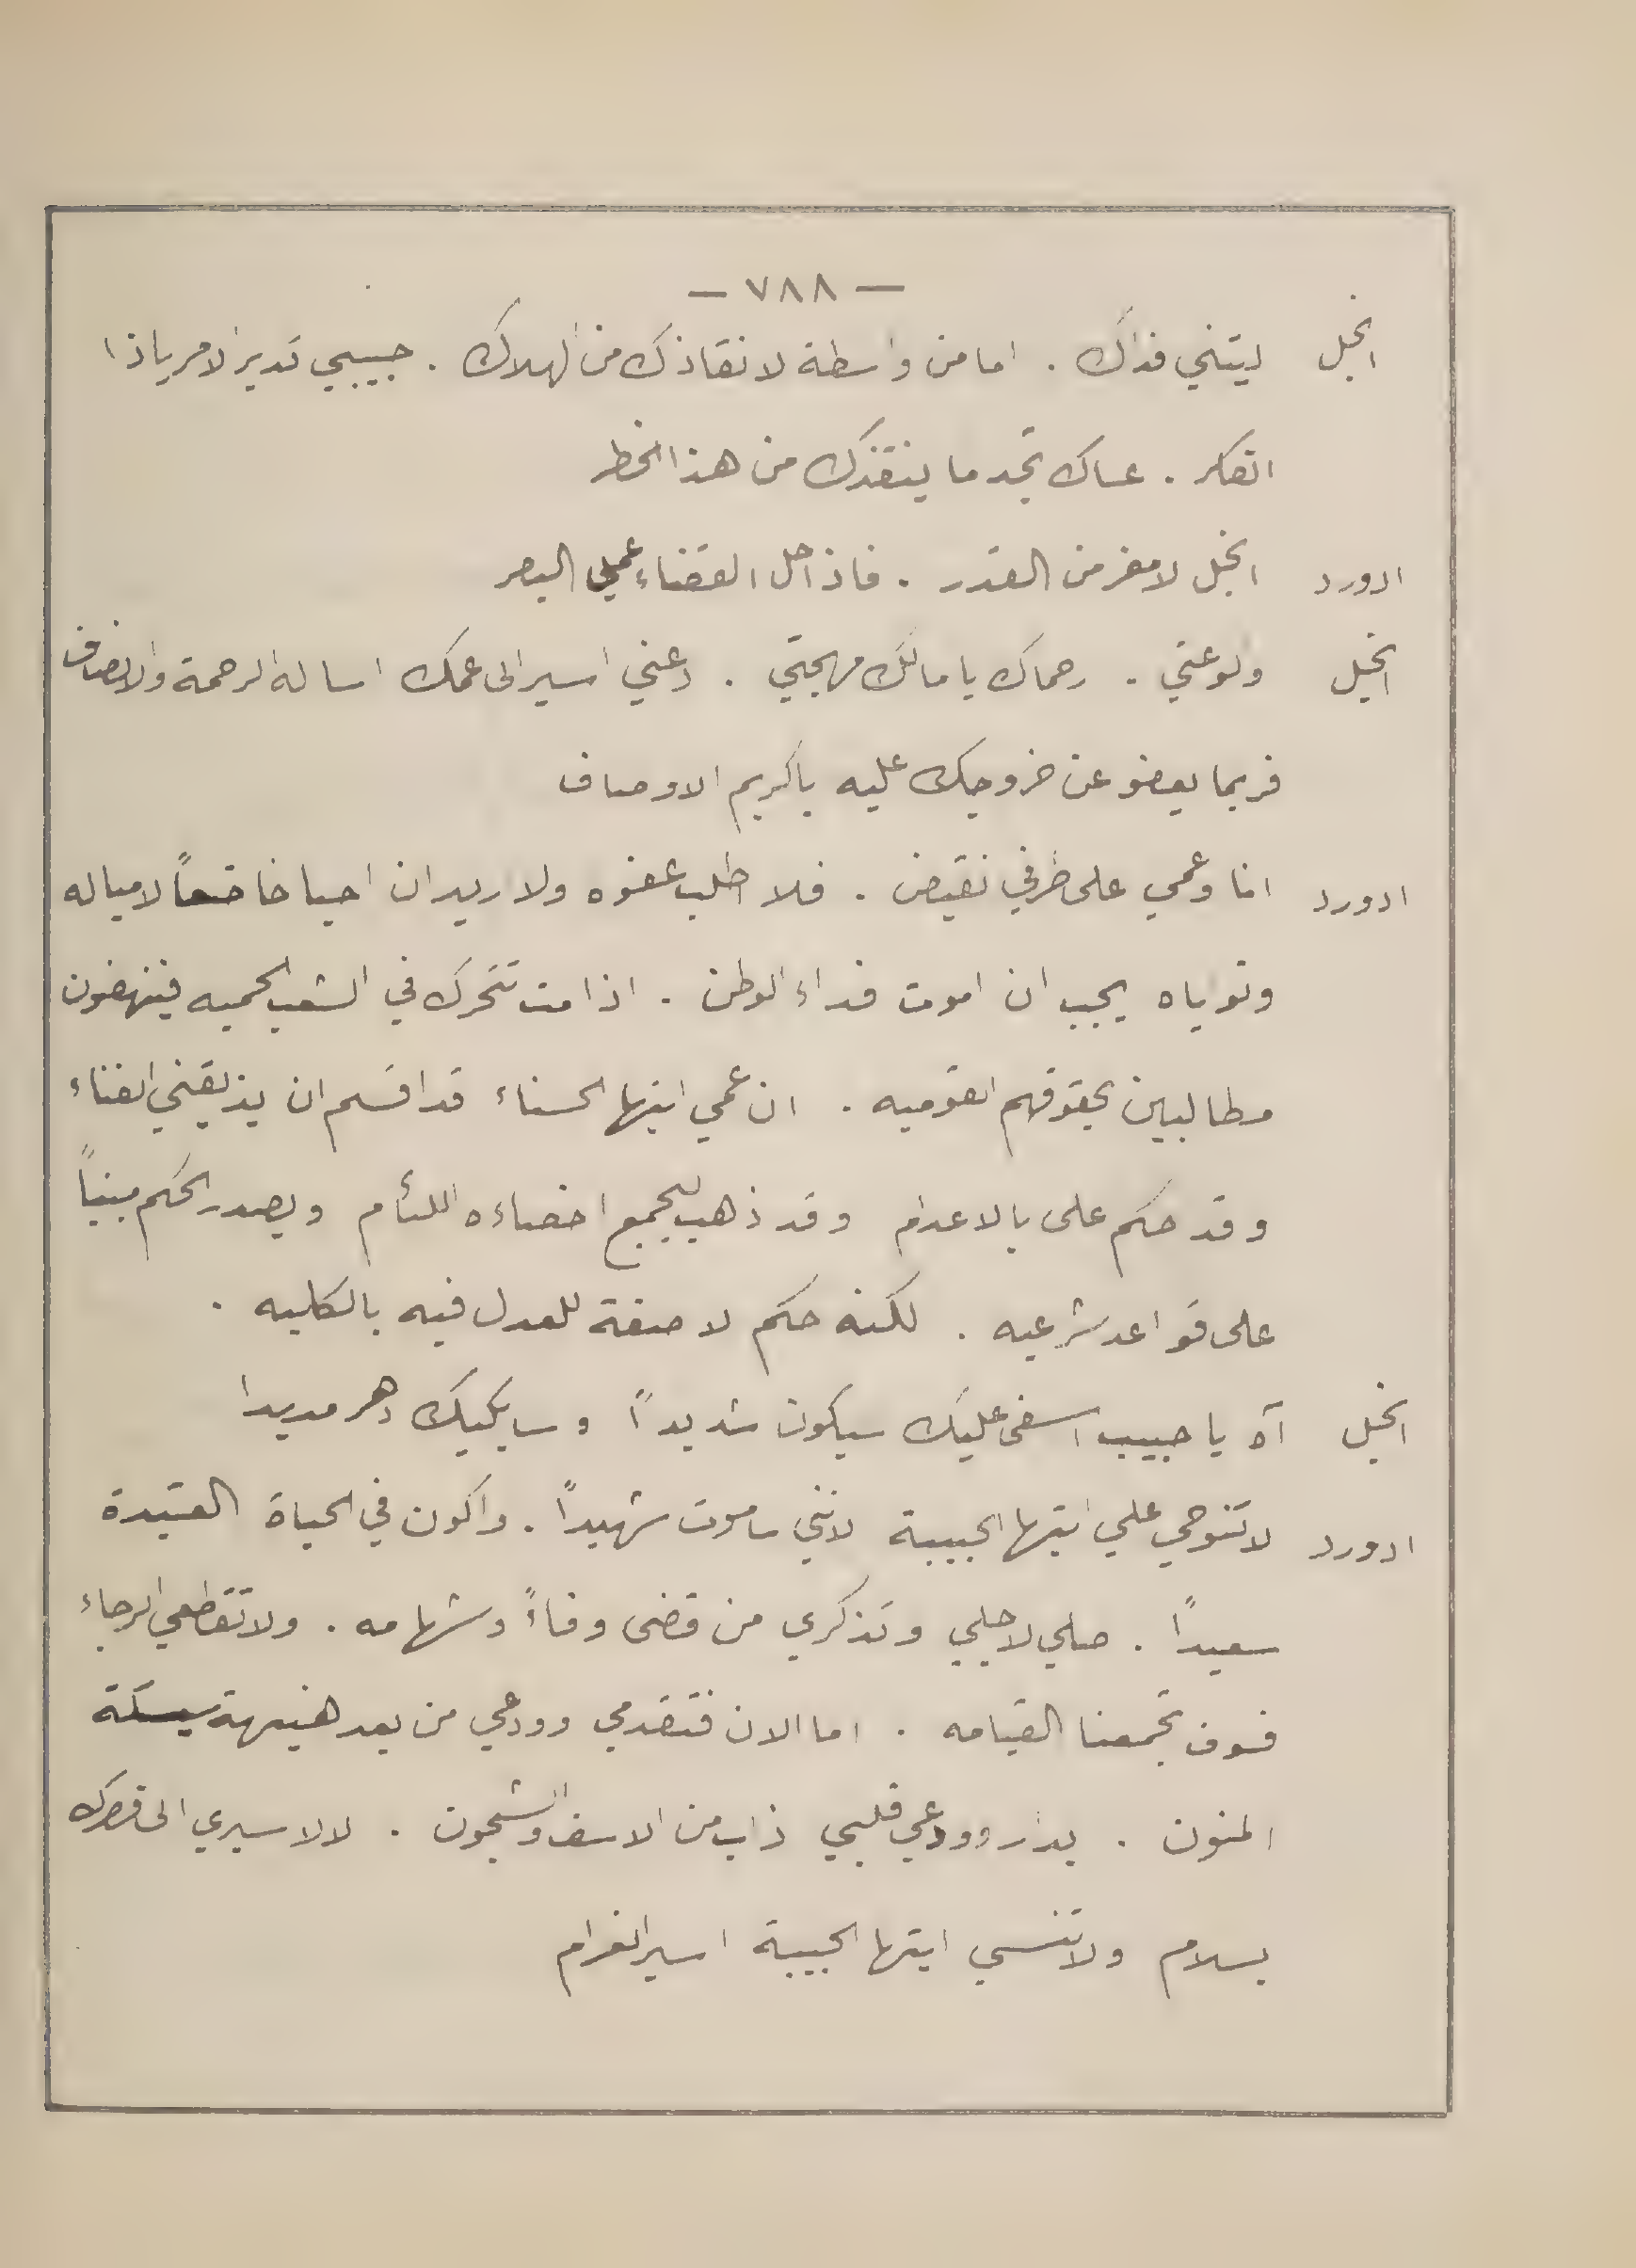 — ٧٨٨ —
انجل ليتني فداك . اما من واسطة لانقاذك من الهلاك . حبيبي تدبر الامر ياذا
الفكر . عساك تجد ما ينقذك من هذا الخطر
ادورد انجل لا مفر من القدر . فاذا حل القضاء عمي البصر
انجيل ولوعتي . رحماك يا مالك مهجتي . دعني اسير الى عمك اساله الرحمة والانصاف
فربما يعفو عن خروجك عليه ياكريم الاوصاف
ادورد انا وعمي على طرفي نقيض . فلا اطلب عفوه ولا اريد ان احيا خاضعاً لامياله
ونواياه يجب ان اموت فداء الوطن . اذا مت تتحرك في الشعب الحميه فينهضون
مطالبين بحقوقهم القوميه . ان عمي ايتها الحسناء قد اقسم ان يذيقني الفناء
وقد حكم على بالاعدام وقد ذهب ليجمع اخصاءه اللئام ويصدر الحكم مبنياً
على قواعد شرعيه . لكنه حكم لا صفة للعدل فيه بالكليه .
انجيل آه يا حبيب اسفى عليك سيكون شديداً وسابكيك دهر مديدا
ادورد لا تنوحي علي ايتها الحبيبة لانني ساموت شهيداً . واكون في الحياة العتيدة
سعيداً . صلي لاجلي وتذكري من قضى وفاءً وشهامه . ولا تقطعي الرجاء
فسوف تجمعنا القيامه . اما الان فتقدمي وودعي من بعد هنيهة
المنون . بدار وودعي قلبي ذاب من الاسف والشجون . لا لا سيري الى قصرك
بسلام ولا تنسي ايتها الحبيبة اسير الغرام